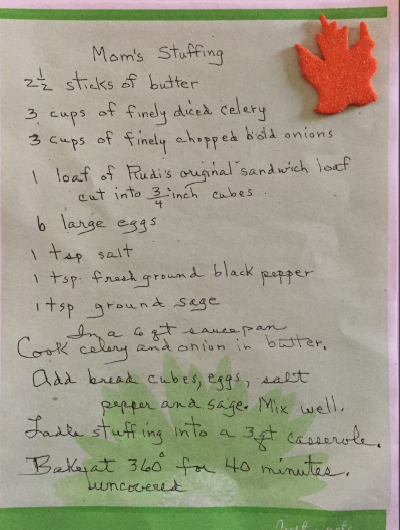 Mom's Stuffing
2 1/2 sticks of butter
3 cups of finely diced celery
3 cups of finely chopped bold onions
1 loaf of Rudi's original sandwich loaf
cut into 3/4 inch cubes.
6 large eggs
1 tsp salt
1 tsp. fresh ground black pepper
1 tsp ground sage
In a 6 qt saucepan
Cook celery and onion in butter.
Add bread cubes, eggs, salt
pepper and sage. Mix well.
Ladle stuffing into a 3 qt casserole.
Bake at 360° for 40 minutes.
uncovered